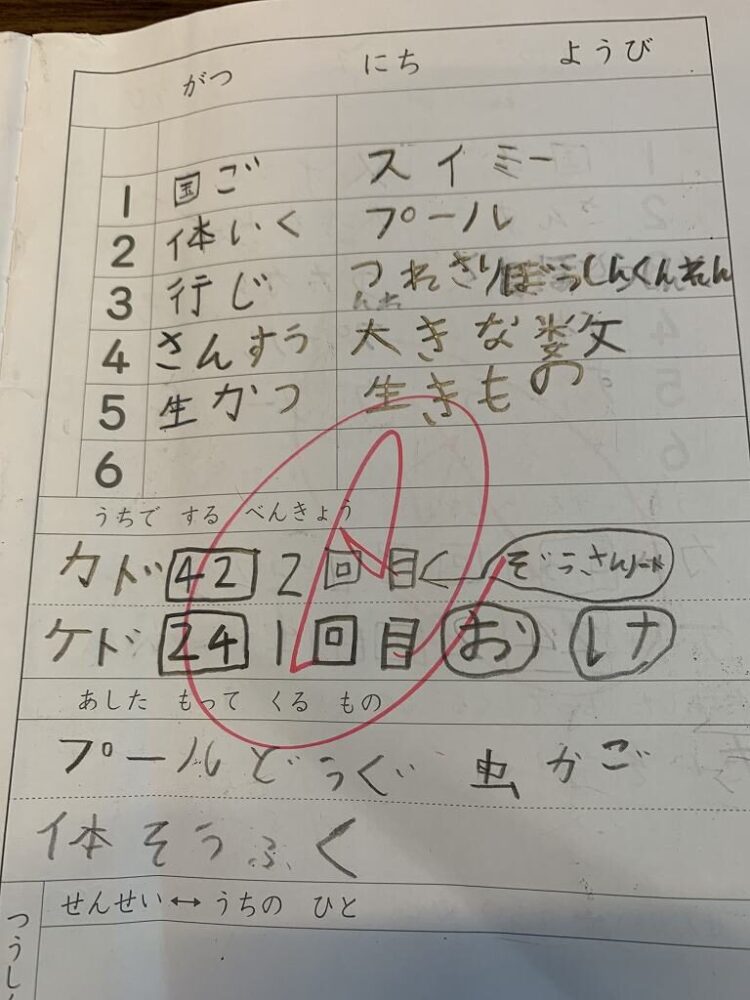 がつ にち ようび
1 国ご スイミー
2 体いく プール
3 行じ つれさりぼうしんくんれん
4 さんすう 大きな数
5 生かつ 生きもの
6
うちで する べんきょう
カド 42 2 回 目 ← ぞうさんノート
ケド 24 1 回 目 お け
あした もって くる もの
プールどうぐ 虫かご
体そうふく
せんせい↔うちの ひと
つうしん